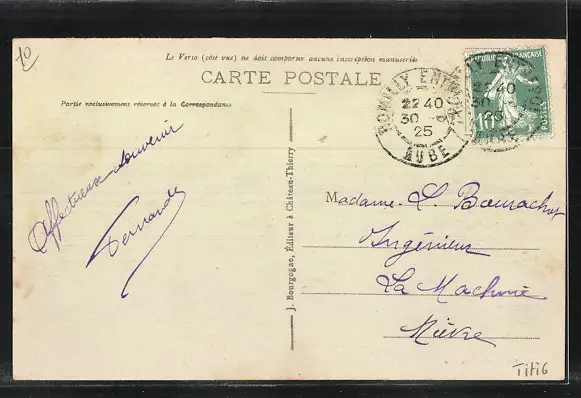 10
Le Verso (côté vue) ne doit comporter aucune inscription manuscrite
CARTE POSTALE
Partie exclusivement réservée à la Correspondance
Affectueux souvenir
Fernande
J. Bourgogne, Éditeur à Château-Thierry
ROMILLY
22 40
30
25
AUBE
RÉPUBLIQUE FRANÇAISE
10
POSTES
22 40
30
25
Madame L. Bourrachot
Ingénieur
La Machine
Nièvre